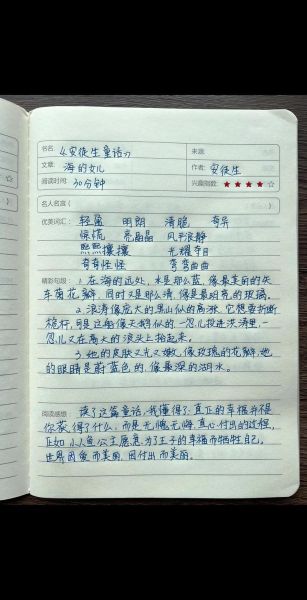 书名: 《安徒生童话》 来源:
文章: 海的女儿 作者: 安徒生
阅读时间: 30分钟 兴趣指数: ★★★★☆
名人名言( )
优美词汇: 轻盈 明朗 清脆 奇异
惊慌 亮晶晶 风平浪静
熙熙攘攘 光耀夺目
奇奇怪怪 弯弯曲曲
精彩句段: 1.在海的远处,水是那么蓝,像最美丽的矢
车菊花瓣,同时又是那么清,像是最明亮的玻璃。
2.浪涛像庞大的黑山似的高涨,它想要折断
桅杆,可是这船像天鹅似的,一忽儿投进洪涛里,一
忽儿又在高大的浪头上抬起来。
3.她的皮肤又光又嫩,像玫瑰的花瓣,她
的眼睛是蔚蓝色的,像最深的湖水。
阅读感想: 读了这篇童话,我懂得了:真正的幸福并不是
你获得了什么,而是无愧无悔、真心付出的过程,
正如小人鱼公主愿意为了王子的幸福而牺牲自己,
世界因爱而美丽,因付出而美丽。